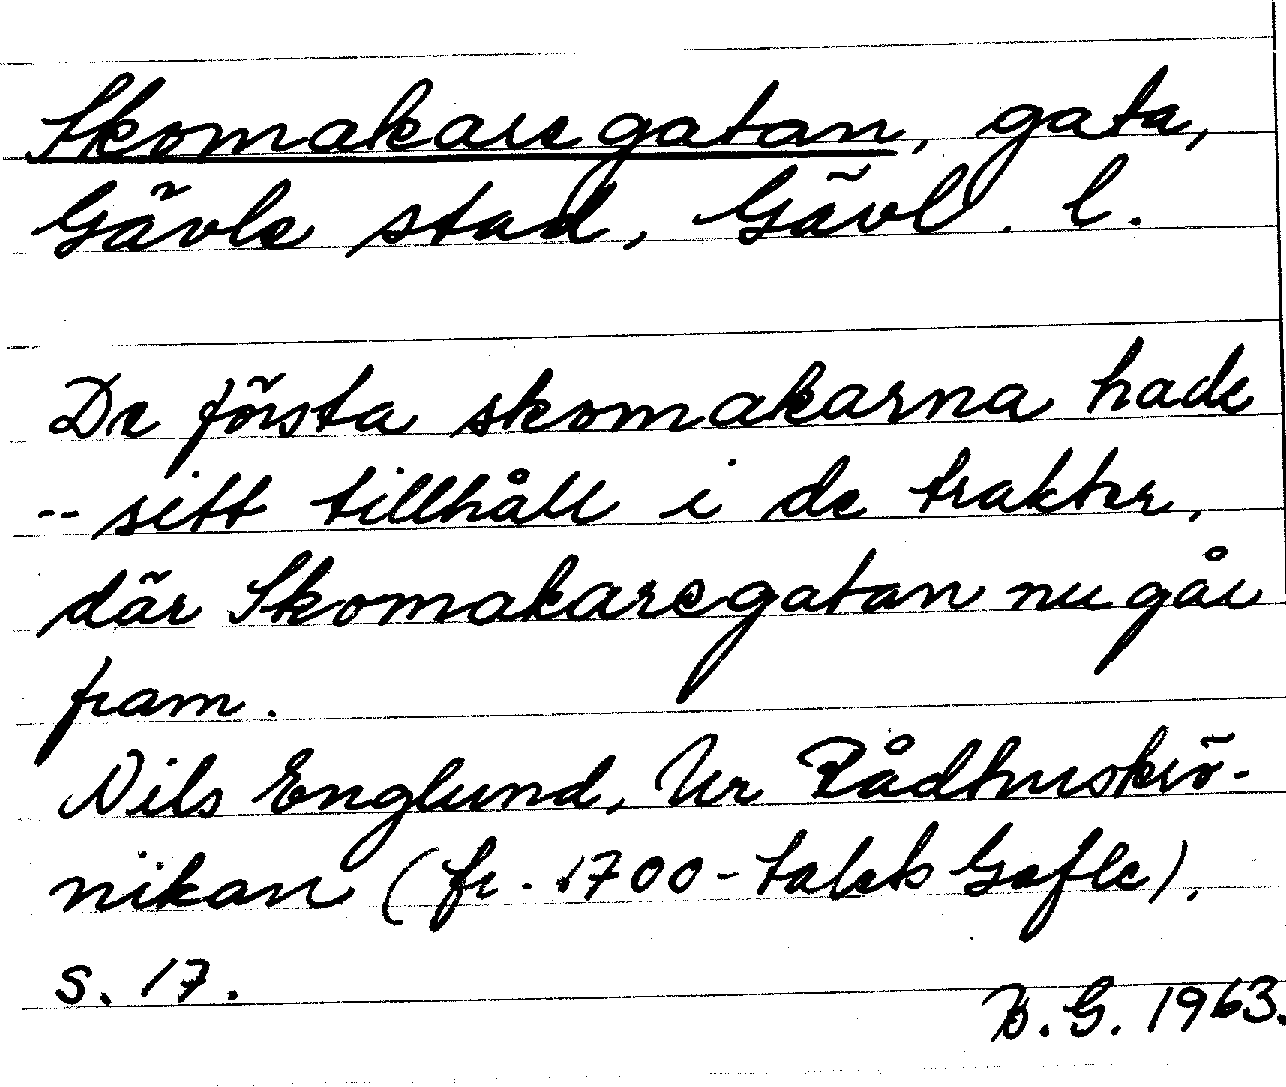 Skomakaregatan, gata,
Gävle stad, Gävl. l.
De första skomakarna hade
-- sitt tillhåll i de trakter,
där Skomakaregatan nu går
fram.
Nils Englund, Ur Rådhuskrö-
nikan (fr. 1700-talets Gefle),
s. 17.
B. G. 1963.